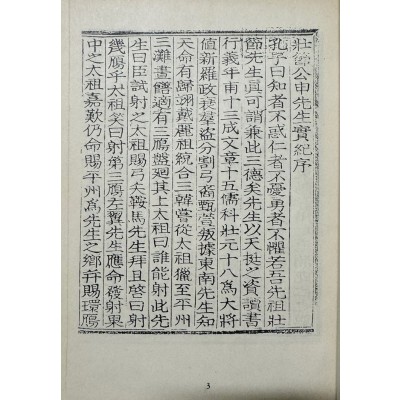 壯節公申先生實紀序
孔子曰知者不惑仁者不憂勇者不懼若吾先祖壯
節先生眞可謂兼此三德矣先生以天挺之資讀書
行義年甫十三成文章十五儒科壯元十八爲大將
値新羅政衰羣盜分割弓裔甄萱叛據東南先生知
天命有歸翊戴麗祖統合三韓嘗從太祖獵至平州
三灘晝饍適有三鴈盤廻其上太祖曰誰能射此先
生曰臣試射之太祖賜弓矢鞍馬先生拜且啓曰射
幾鴈乎太祖笑曰射第三鴈左翼先生應命發射果
中之太祖嘉歎仍命賜平州爲先生之鄕幷賜環鴈
3